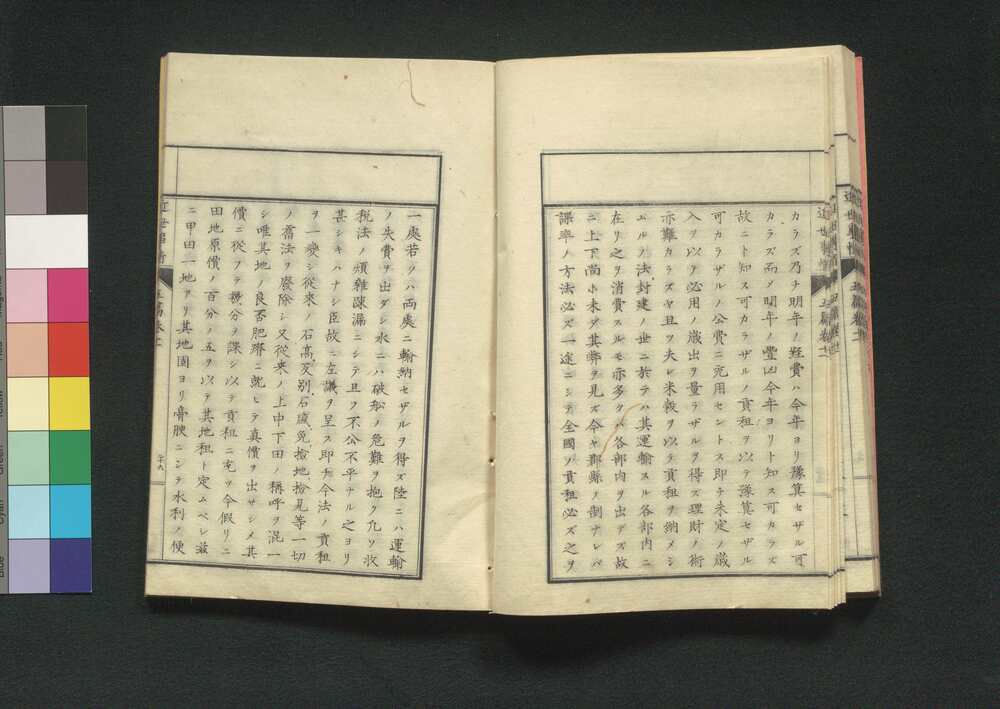 カラズ乃チ明年ノ経費ハ今年ヨリ豫算セザル可
カラズ而メ明年ノ豊凶今年ヨリト知ス可カラズ
故ニト知ス可カラザルノ貢租ヲ以テ豫算セザル
可カラザルノ公費ニ充用セントス即チ未定ノ歳
入ヲ以テ必用ノ歳出ヲ量ラザルヲ得ズ理財ノ術
亦難カラズヤ且ツ夫レ米穀ヲ以テ貢租ヲ納メシ
ムルノ法封建ノ世ニ於テハ其運輸スル各部内ニ
在リ之ヲ消費スルモ亦多クハ各部内ヲ出デズ故
ニ上下尚ホ未ダ其弊ヲ見ズ今ヤ郡縣ノ制ナレバ
課率ノ方法必ズ一途ニシテ全國ノ貢租必ズ之ヲ
一處若クハ両處ニ輸納セザルヲ得ズ陸ニハ運輸
ノ失費ヲ出ダシ水ニハ破船ノ危難ヲ抱ク凢ソ收
税法ノ煩雑疎漏ニシテ且ツ不公不平ナル之ヨリ
甚シキハナシ臣故ニ左議ヲ呈ス即チ今法ノ貢租
ヲ一変シ従来ノ石高反別石盛免檢地檢見等一切
ノ舊法ヲ廢除シ又従来ノ上中下田ノ稱呼ヲ混一
シ唯其地ノ良否肥瘠ニ就ヒテ真價ヲ出サシメ其
價ニ従フテ幾分ヲ課シ以テ貢租ニ充ツ今假リニ
田地原價ノ百分ノ五ヲ以テ其地租ト定ムベシ茲
ニ甲田一地アリ其地圍ヨリ膏腴ニシテ水利ノ便